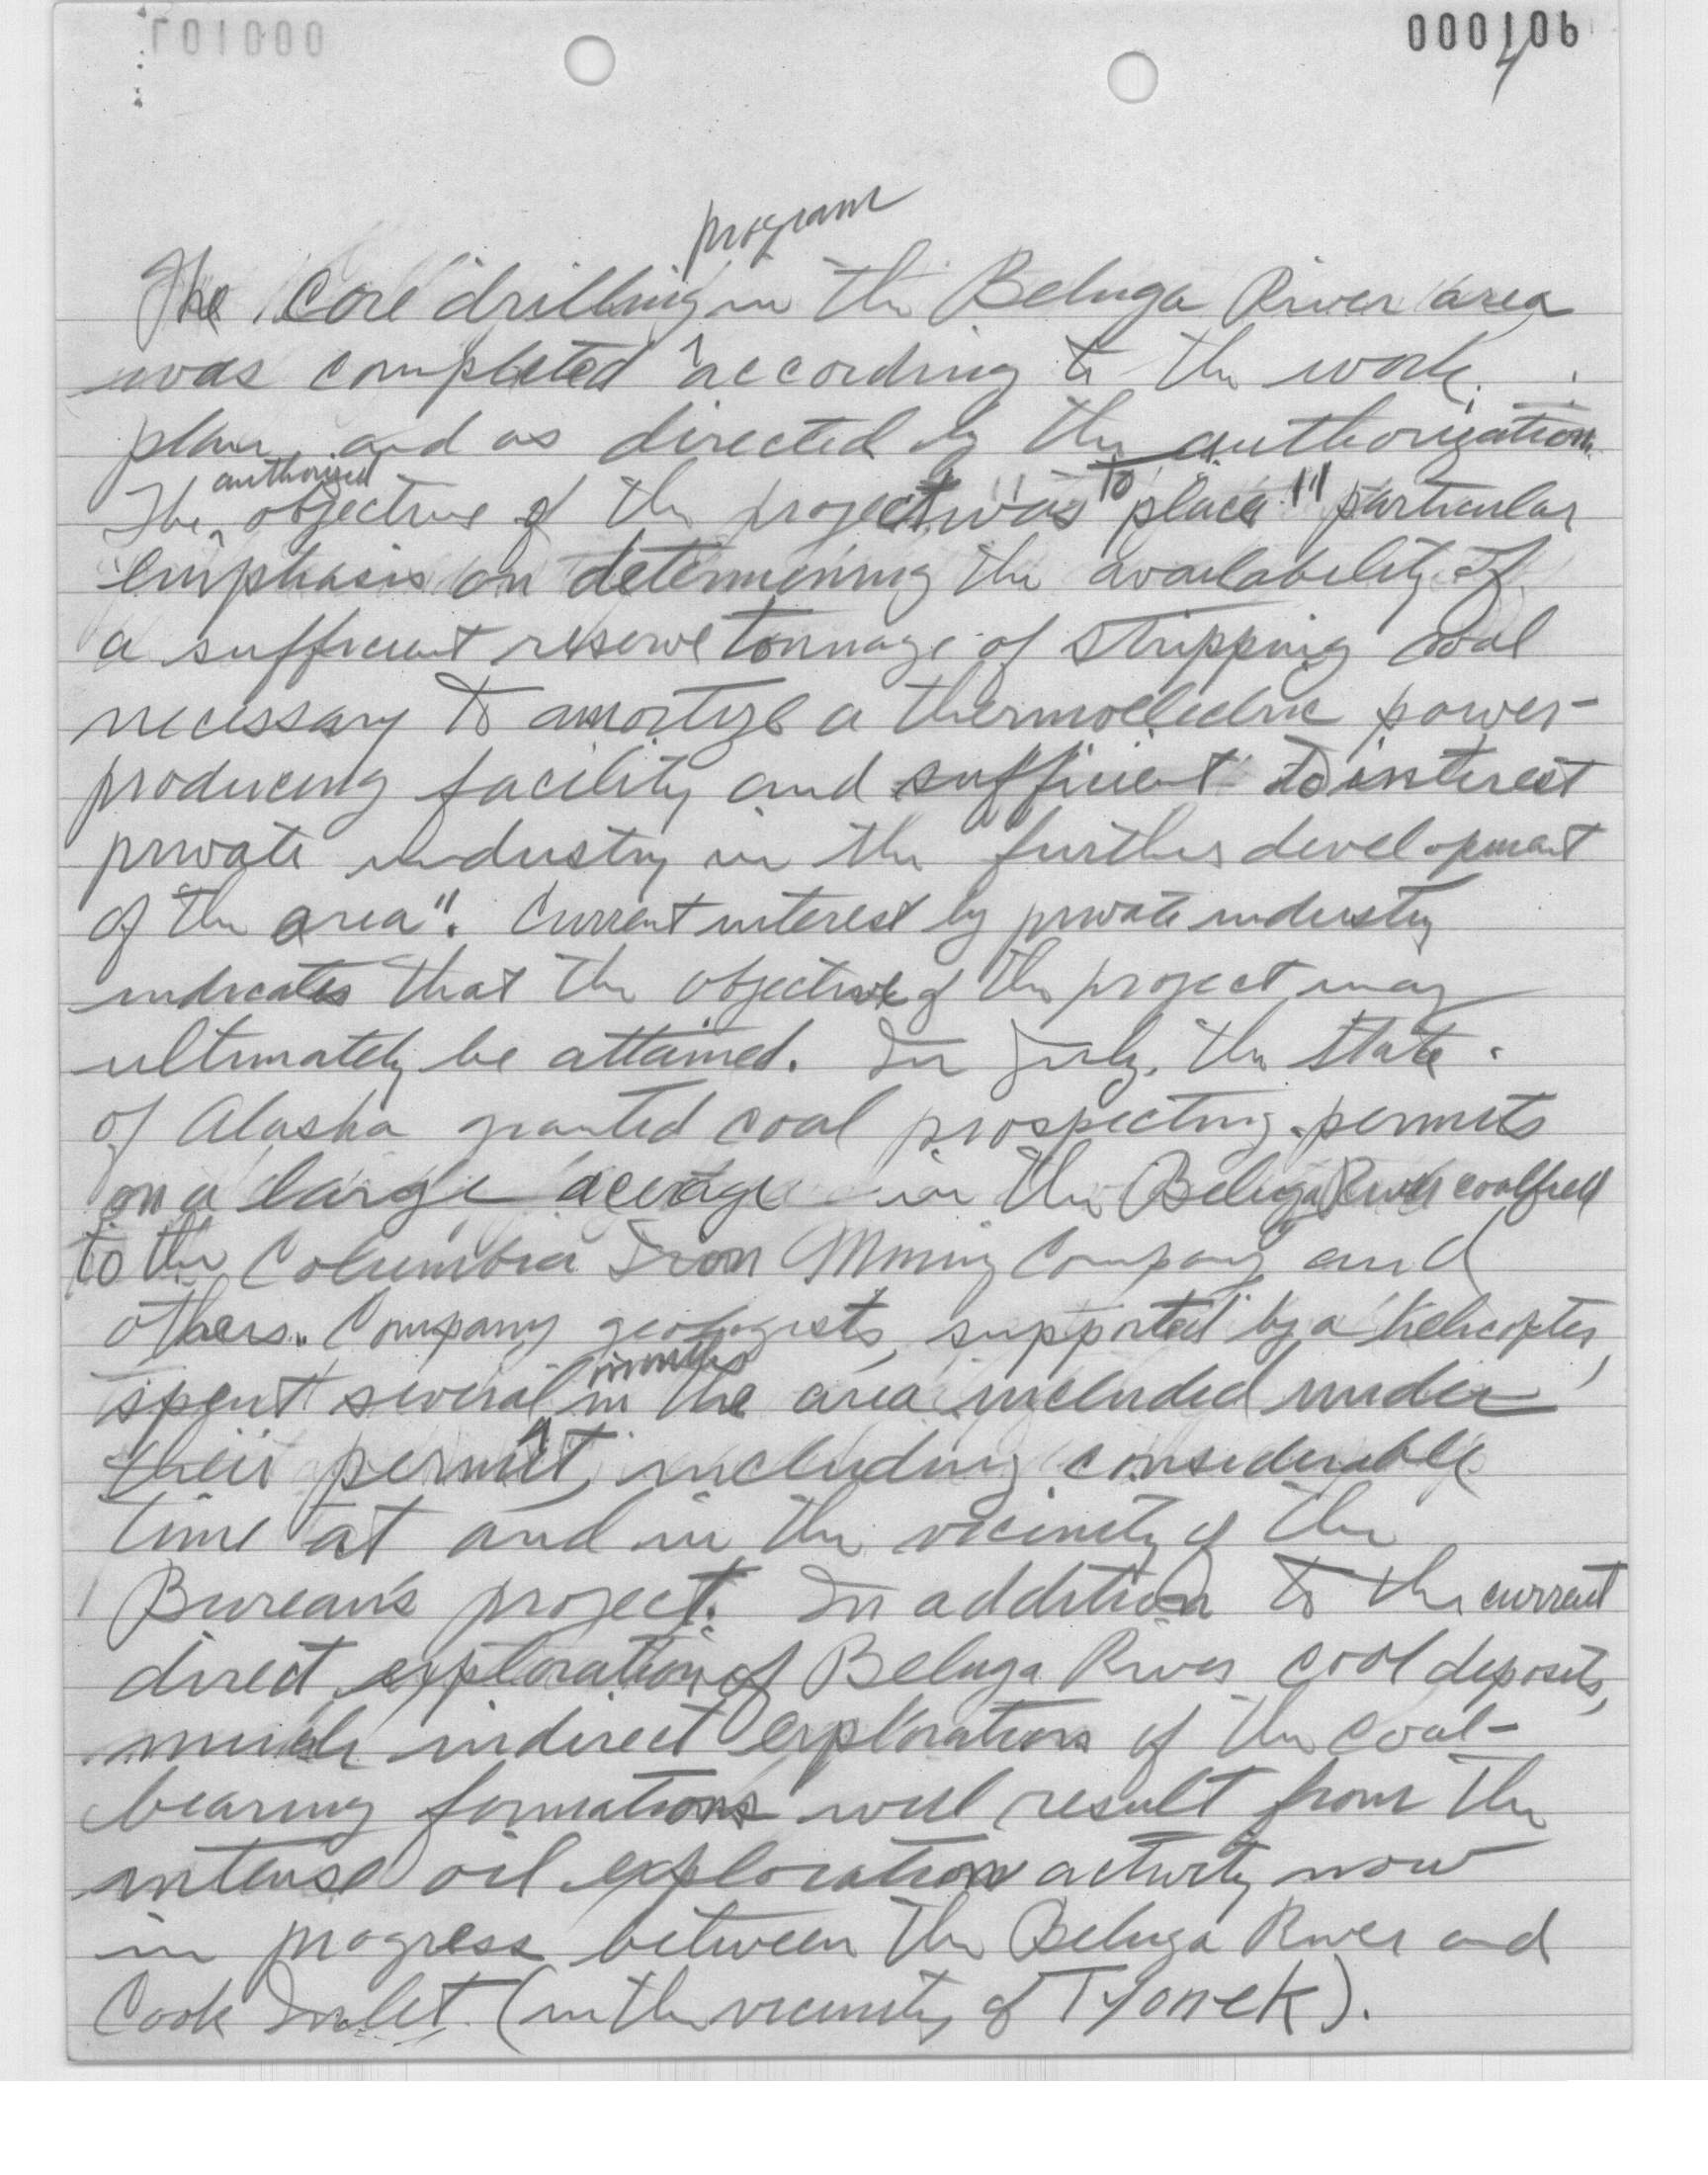 000106
4
program
The core drilling in the Beluga River area
was completed according to the work
plan and as directed by the authorization.
authorized
The objective of the project was to "place particular
emphasis on determining the availability of
a sufficient reserve tonnage of stripping coal
necessary to amortize a thermoelectric power-
producing facility and sufficient to interest
private industry in the further development
of the area". Current interest by private industry
indicates that the objective of the project may
ultimately be attained. In July, the State
of Alaska granted coal prospecting permits
on a large acerage in the Beluga River coalfield
to the Columbia Iron Mining Company and
others. Company geologists, supported by a helicopter,
months
spent several in the area included under
their permit, including considerable
time at and in the vicinity of the
Bureau's project. In addition to the current
direct exploration of Beluga River coal deposits,
much indirect exploration of the coal-
bearing formations will result from the
intense oil exploration activity now
in progress between the Beluga River and
Cook Inlet (in the vicinity of Tyonek).